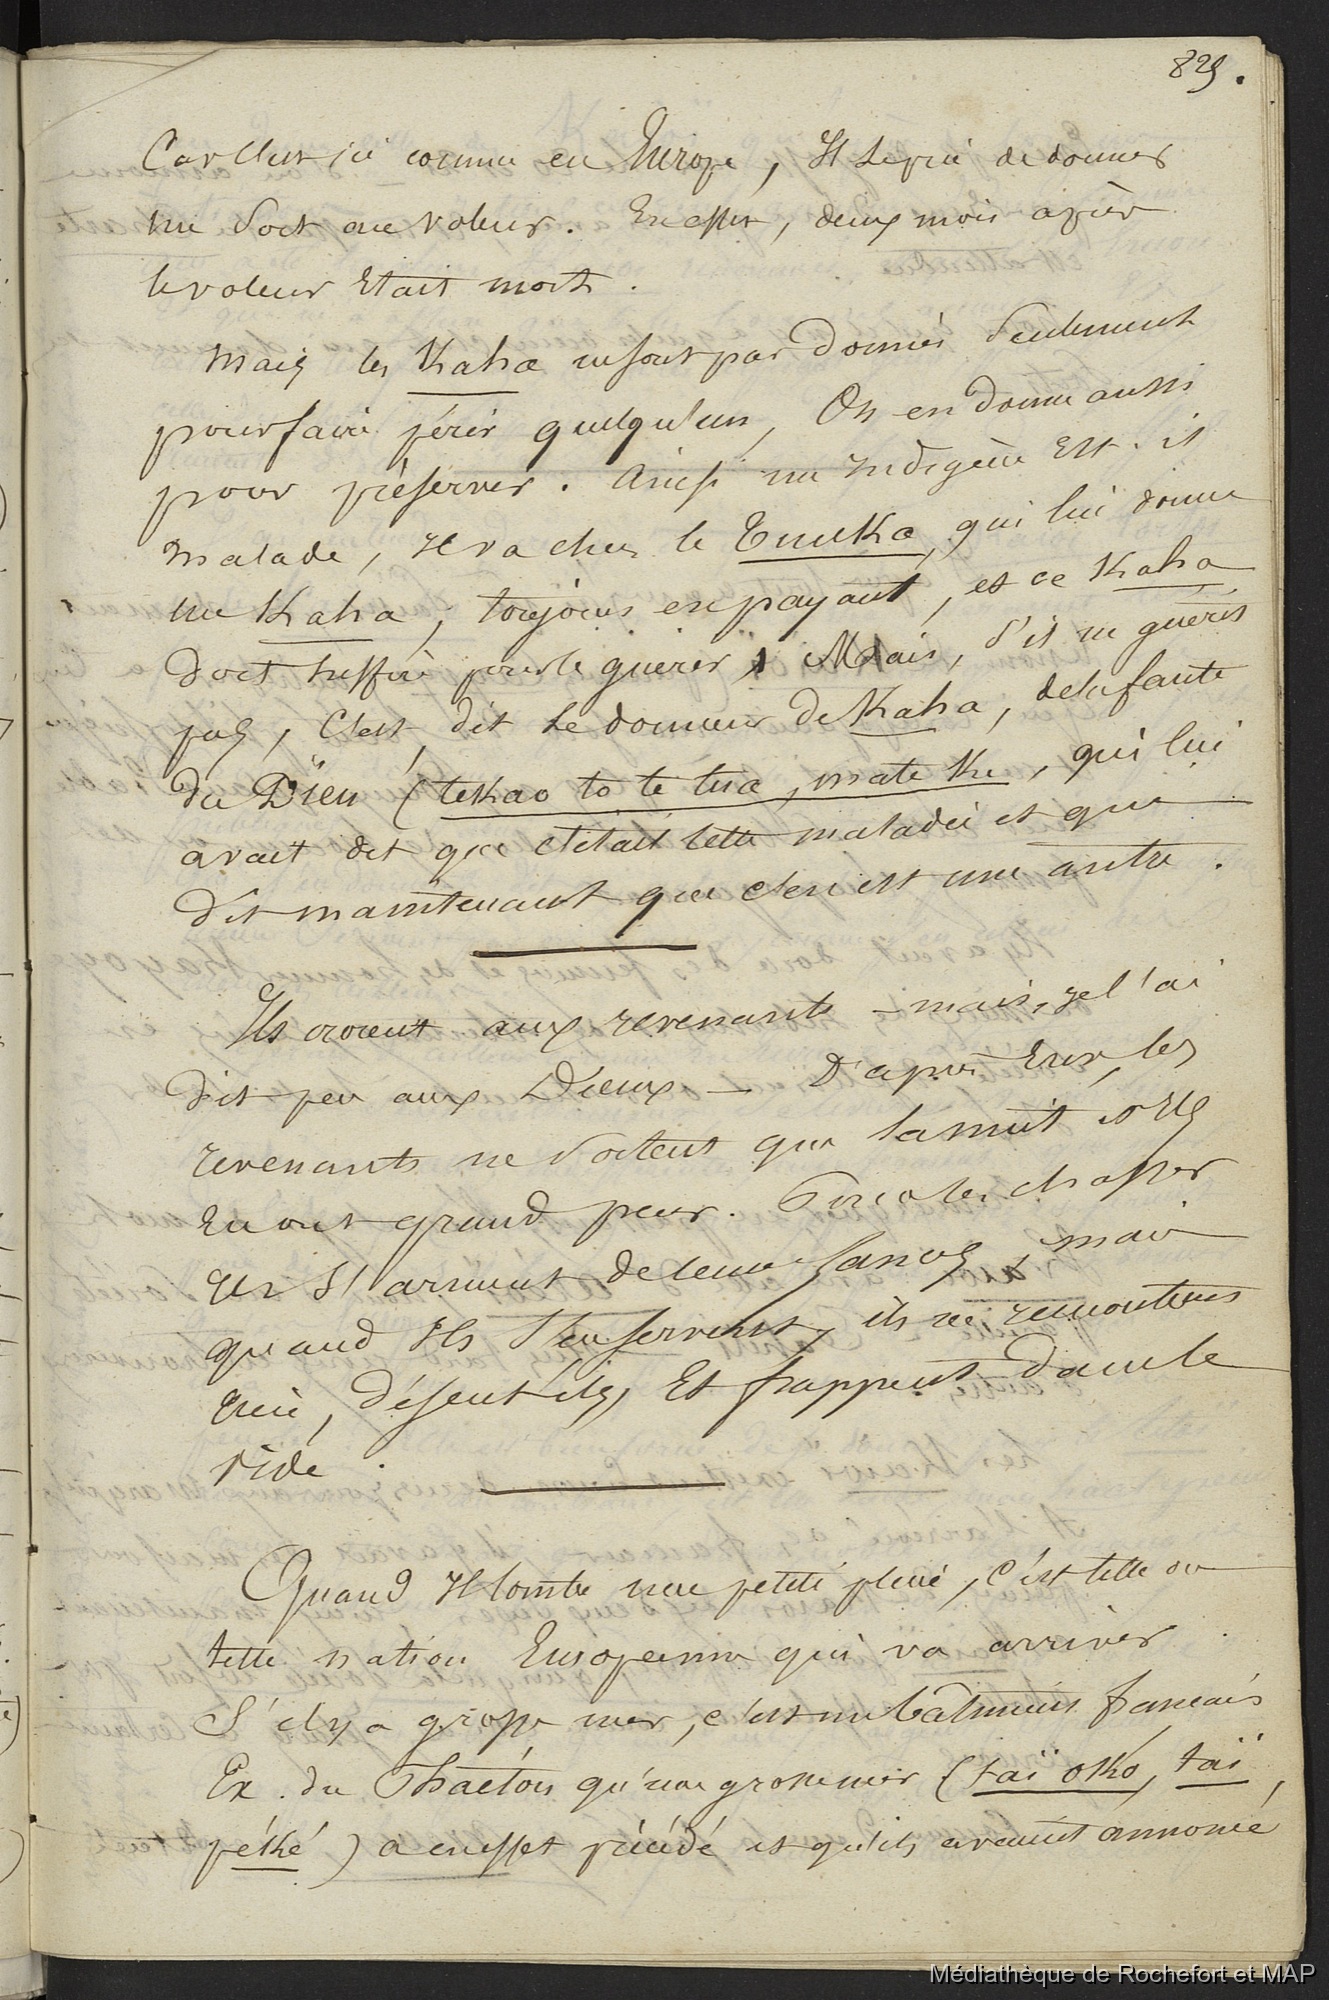 829.
comme en Europe, Il le prie de donner
un sort au voleur. En effet, deux mois après
le voleur Etait mort.
Mais les Kaha ne sont pas donnés Seulement
pour faire périr quelqu'un, On en donne aussi
pour préserver. Ainsi un Indigène Est-il
malade, Il va chez le Tuuka, qui lui donne
un Kaha, toujours en payant, et ce Kaha
doit suffire pour le guérir, Mais, s'il ne guérit
pas, C'est, dit le donneur de Kaha, de la faute
du Dieu (tekao to te tua, mate ke, qui lui
avait dit que c'était telle maladie et que
dit maintenant que c'en est une autre.
Ils croient aux revenants – mais, je l'ai
dit peu aux Dieux – D'après Eux, les
revenants ne sortent que la nuit et Ils
En ont grand peur. Pour les chasser
Ils s'arment de leurs lances, mais
quand Ils s'en servent, ils ne rencontrent
rien, disent-ils, Et frappent dans le
vide.
Quand Il tombe une petite pluie, c'est telle ou
telle nation Européenne qui va arriver.
S'il y a grosse mer, c'est un bâtiment français
Ex. du Phaéton qu'une grosse mer (taï oko, taï
péké) a en effet précédé et qu'ils avaient annoncé
Médiathèque de Rochefort et MAP